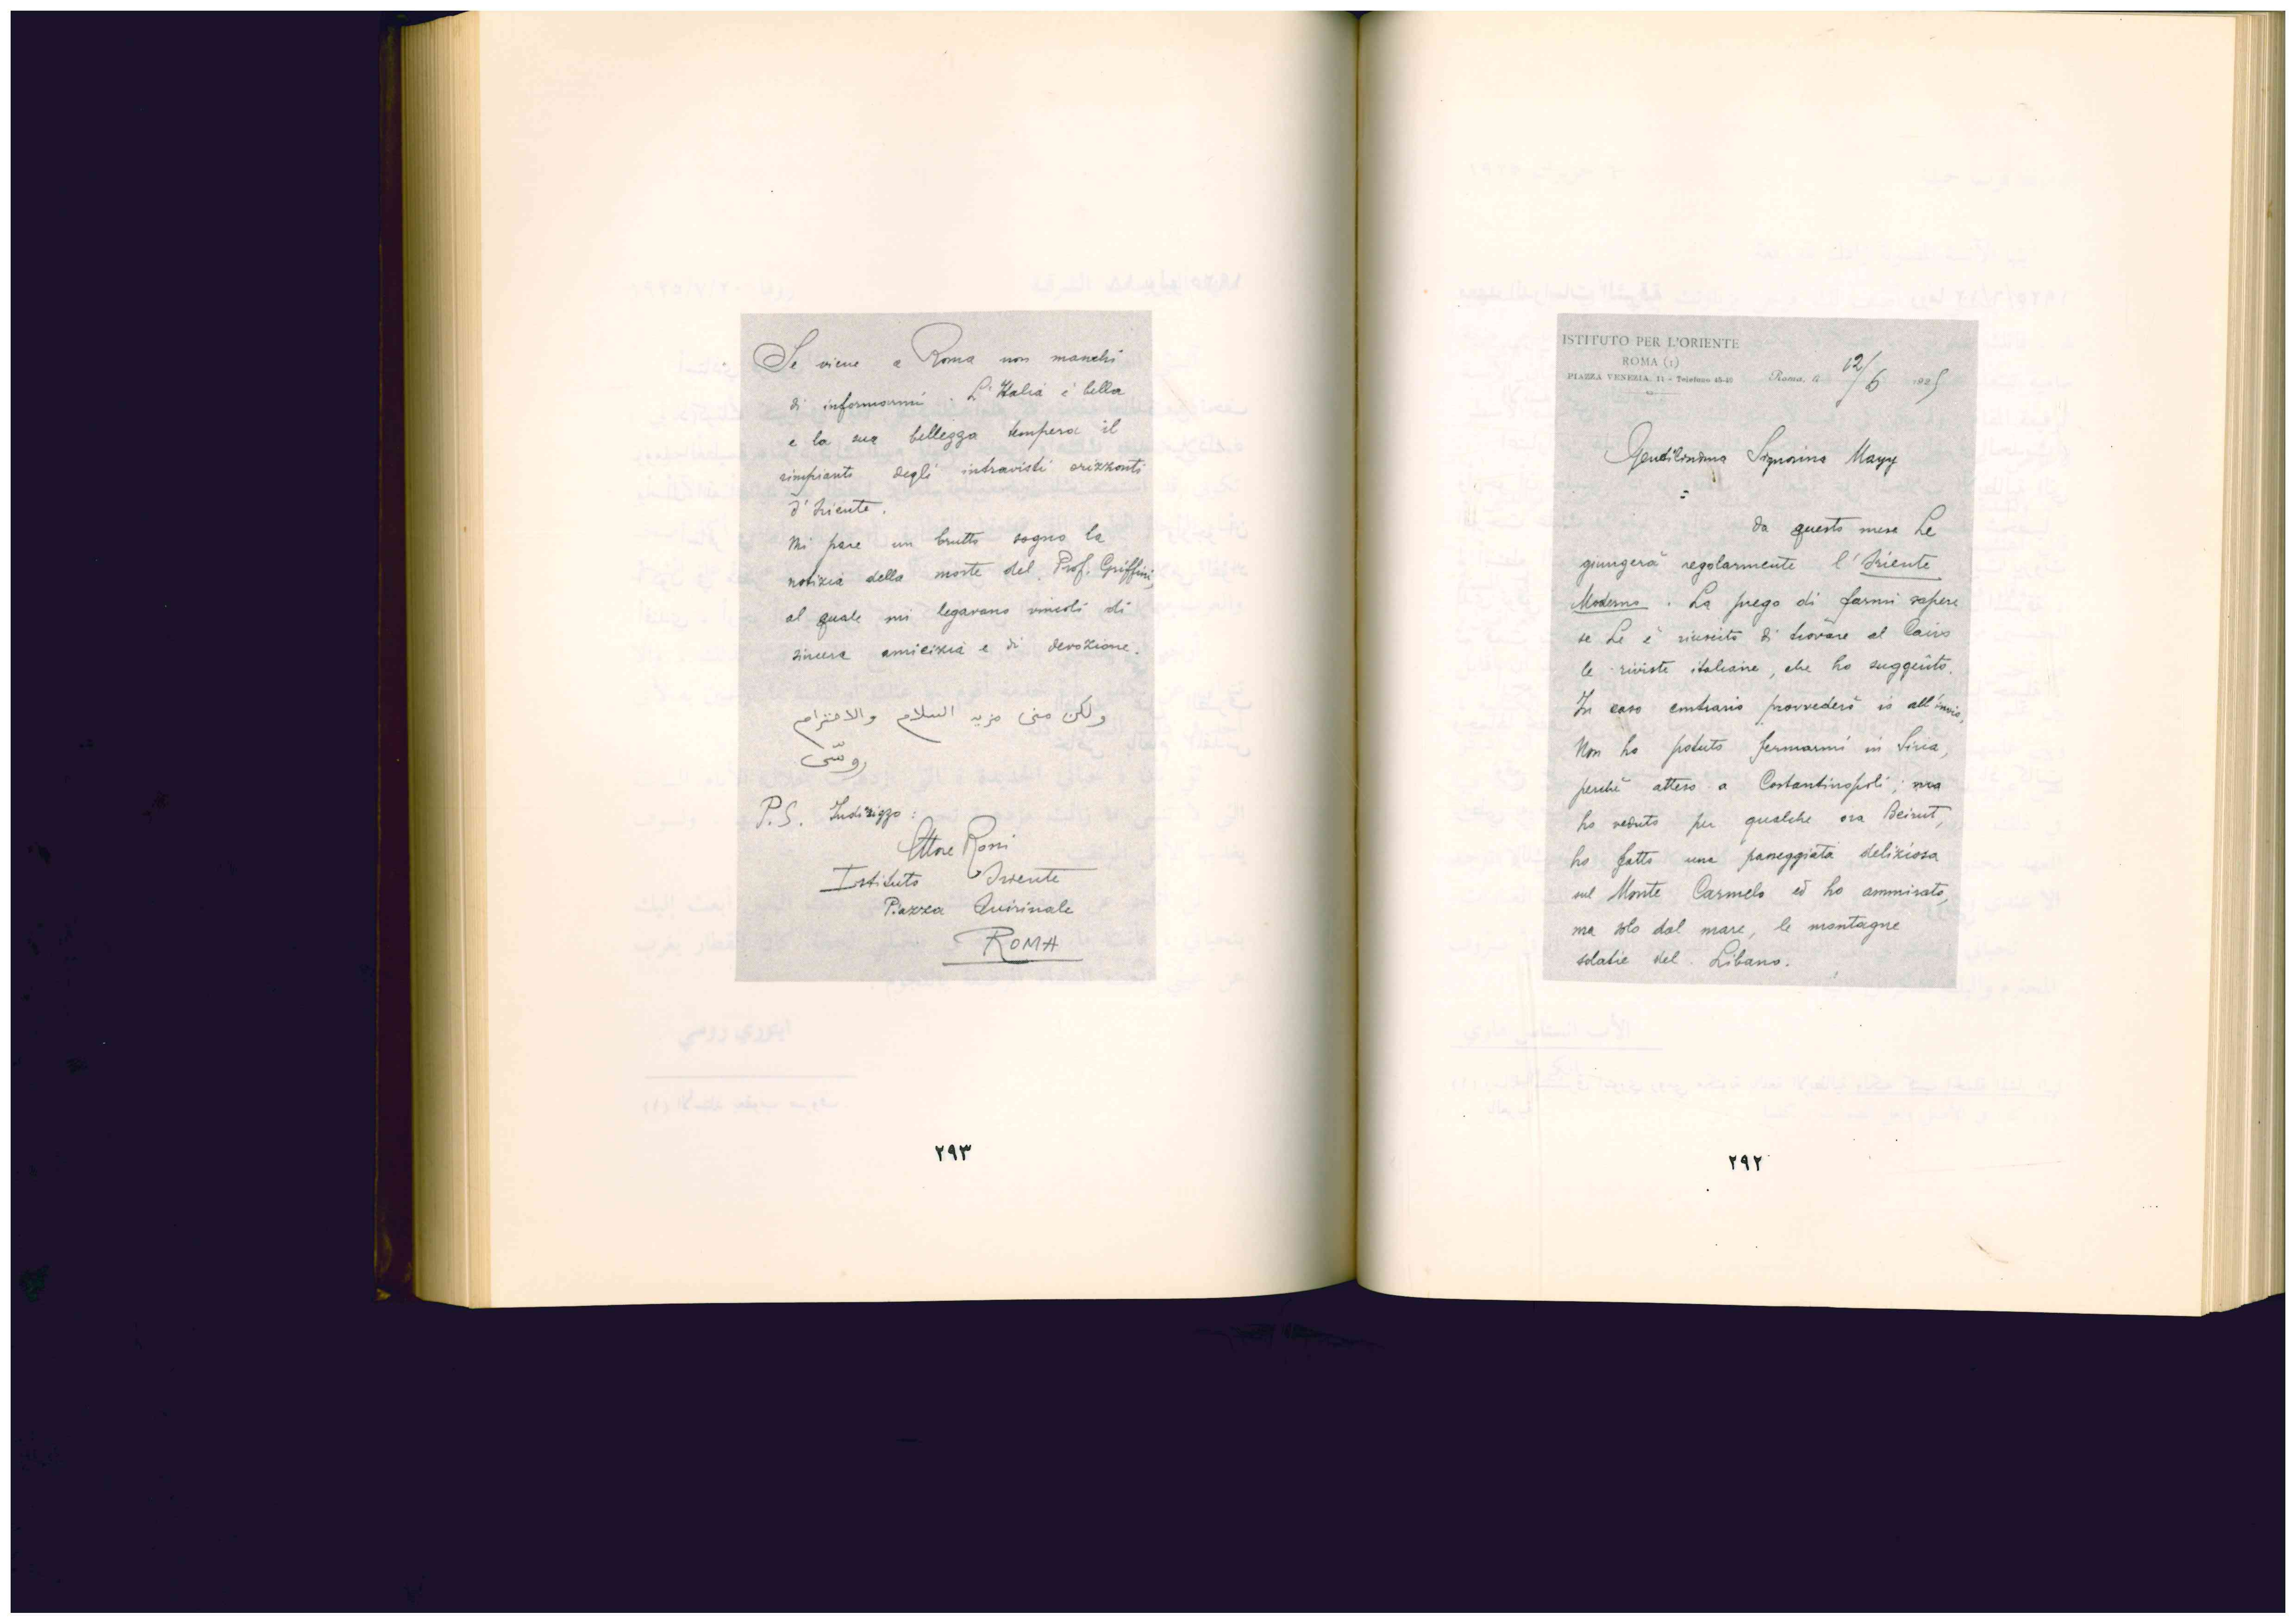 ISTITUTO PER L'ORIENTE
ROMA (1)
PIAZZA VENEZIA, 11 - Telefono 45-40
Roma, li 12/6 1925
Gentilissima Signorina Mayy
da questo mese Le
giungerà regolarmente l'Oriente
Moderno. La prego di farmi sapere
se Le è riuscito di trovare al Cairo
le riviste italiane, che ho suggerito.
In caso contrario provvederò io all'invio.
Non ho potuto fermarmi in Siria,
perchè atteso a Costantinopoli; ma
ho veduto per qualche ora Beirut,
ho fatto una passeggiata deliziosa
sul Monte Carmelo ed ho ammirato,
ma solo dal mare, le montagne
solatie del Libano.
٢٩٢
Se viene a Roma non manchi
di informarmi. L'Italia è bella
e la sua bellezza tempera il
rimpianto degli intravisti orizzonti
d'Oriente.
Mi pare un brutto sogno la
notizia della morte del Prof. Griffini,
al quale mi legavano vincoli di
sincera amicizia e di devozione.
ولكن منى مزيد السلام والاحترام
روسّى
P.S. Indirizzo:
Ettore Rossi
Istituto Oriente
Piazza Quirinale
ROMA
٢٩٣